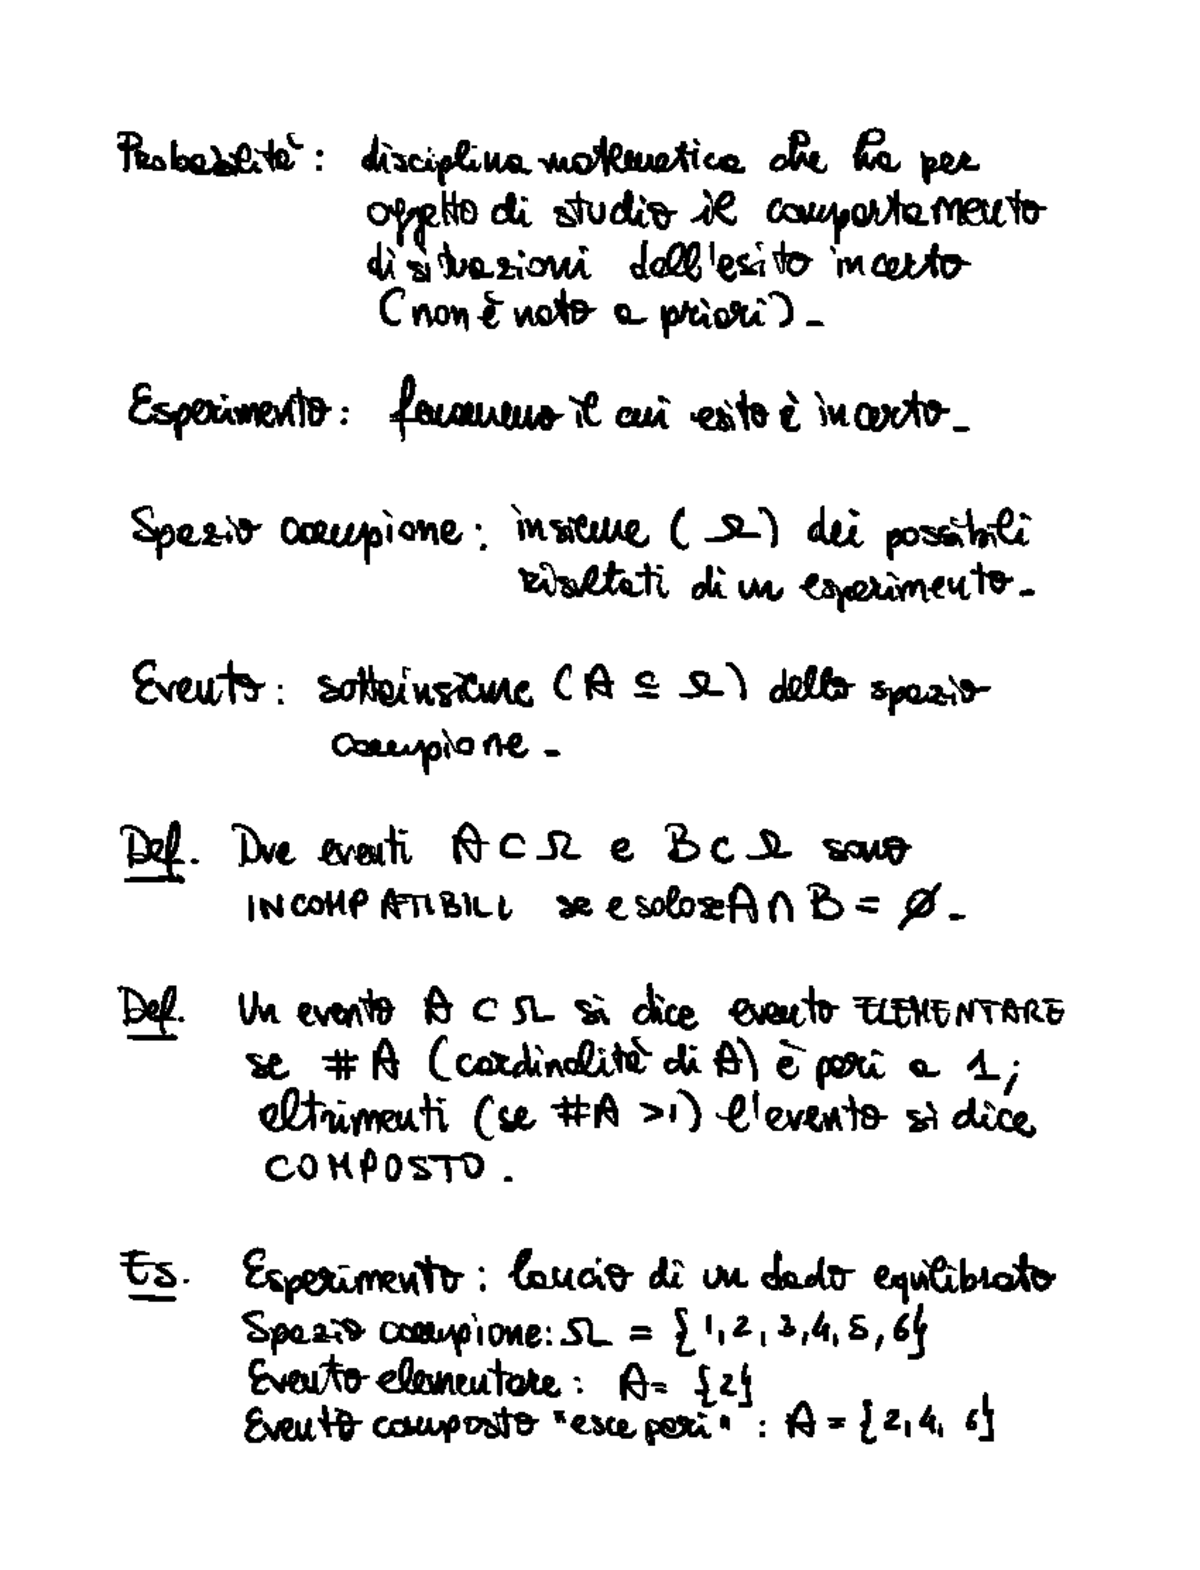 Probabilità: disciplina matematica che ha per
oggetto di studio il comportamento
di situazioni dall'esito incerto
(non è noto a priori).
Esperimento: fenomeno il cui esito è incerto.
Spazio campione: insieme (Ω) dei possibili
risultati di un esperimento.
Evento: sottoinsieme (A ⊆ Ω) dello spazio
campione.
Def. Due eventi A ⊂ Ω e B ⊂ Ω sono
INCOMPATIBILI se e solo se A ∩ B = ∅.
Def. Un evento A ⊂ Ω si dice evento ELEMENTARE
se #A (cardinalità di A) è pari a 1;
altrimenti (se #A >1) l'evento si dice
COMPOSTO.
Es. Esperimento: lancio di un dado equilibrato
Spazio campione: Ω = {1,2,3,4,5,6}
Evento elementare: A= {2}
Evento composto "esce pari": A = {2,4,6}